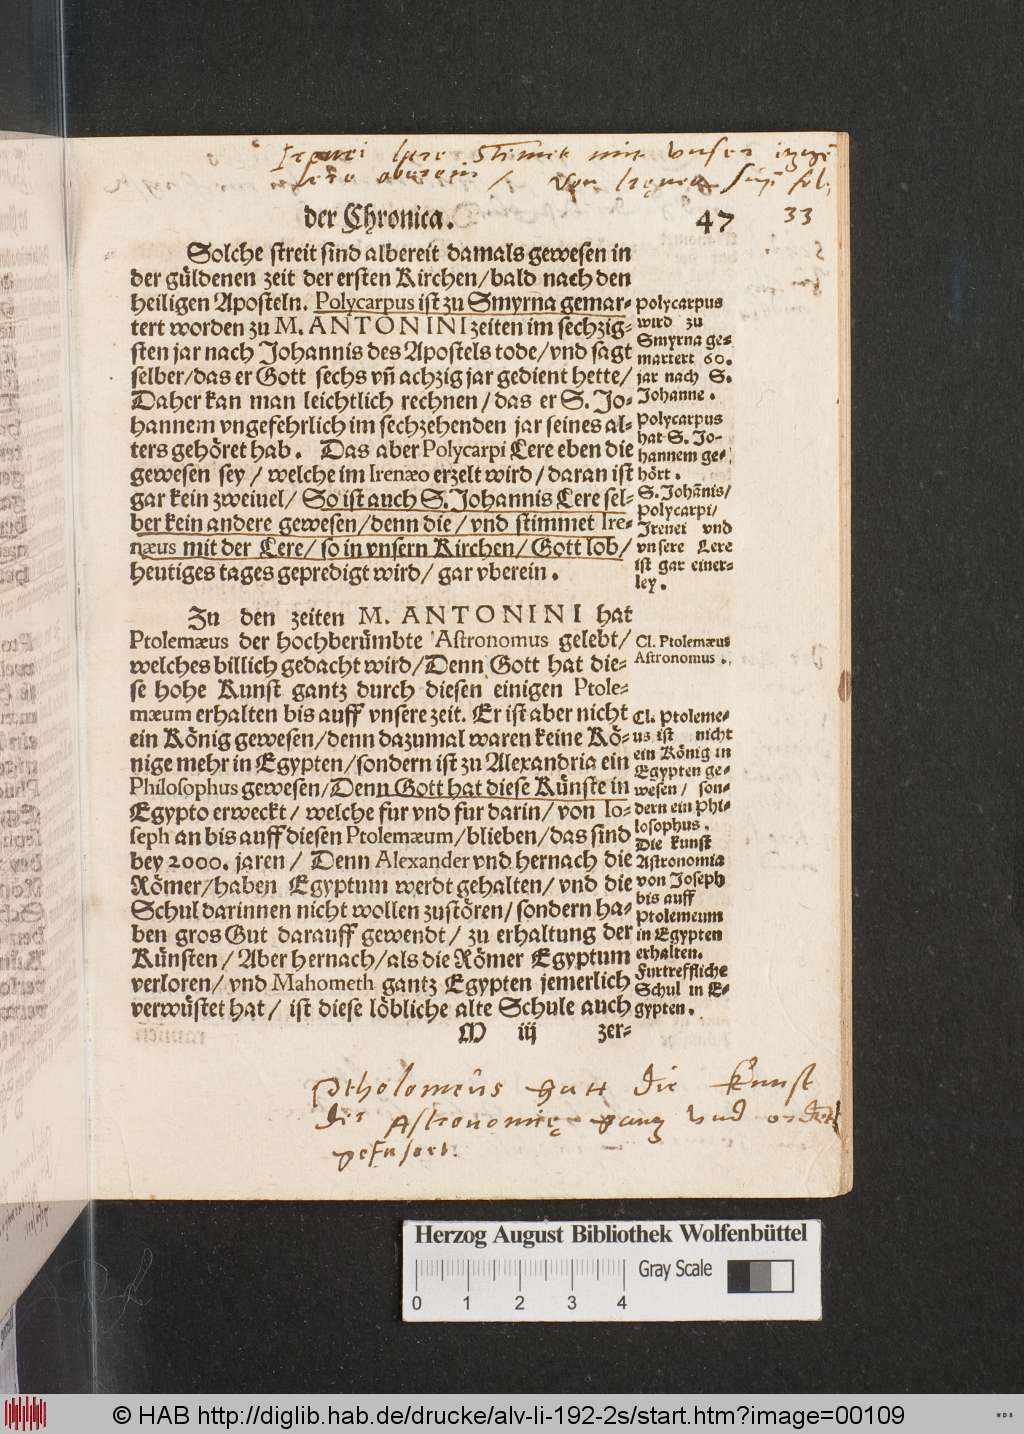 Irenei lere stimet mit vnser itzige
lere vberein / Von Irenea supr fol.
33
der Chronica. 47
Solche streit sind albereit damals gewesen in
der güldenen zeit der ersten Kirchen/bald nach den
heiligen Aposteln. Polycarpus ist zu Smyrna gemar-
tert worden zu M. ANTONINI zeiten im sechzig-
sten jar nach Johannis des Apostels tode/vnd sagt
selber/das er Gott sechs vñ achzig jar gedient hette/
Daher kan man leichtlich rechnen/das er S. Jo-
hannem vngefehrlich im sechzehenden jar seines al-
ters gehöret hab. Das aber Polycarpi Lere eben die
gewesen sey / welche im Irenæo erzelt wird/daran ist
gar kein zweiuel/ So ist auch S. Johannis Lere sel-
ber kein andere gewesen/denn die/ vnd stimmet Ire-
næus mit der Lere/ so in vnsern Kirchen/ Gott lob/
heutiges tages gepredigt wird/ gar vberein.
Polycarpus
wird zu
Smyrna ge-
martert 60.
jar nach S.
Johanne.
Polycarpus
hat S. Jo-
hannem ge-
hört.
S. Johãnis/
Polycarpi/
Irenei vnd
vnsere Lere
ist gar einer-
ley.
Zu den zeiten M. ANTONINI hat
Ptolemæus der hochberümbte Astronomus gelebt/
welches billich gedacht wird/Denn Gott hat die-
se hohe Kunst gantz durch diesen einigen Ptole-
mæum erhalten bis auff vnsere zeit. Er ist aber nicht
ein König gewesen/denn dazumal waren keine Kö-
nige mehr in Egypten/sondern ist zu Alexandria ein
Philosophus gewesen/Denn Gott hat diese Künste in
Egypto erweckt/ welche fur vnd fur darin/ von Io-
seph an bis auff diesen Ptolemæum/blieben/das sind
bey 2000. jaren/ Denn Alexander vnd hernach die
Römer/haben Egyptum werdt gehalten/ vnd die
Schul darinnen nicht wollen zustören/ sondern ha-
ben gros Gut darauff gewendt/ zu erhaltung der
Künsten/ Aber hernach/als die Römer Egyptum
verloren/ vnd Mahometh gantz Egypten jemerlich
verwüstet hat/ ist diese löbliche alte Schule auch
Cl. Ptolemæus
Astronomus.
Cl. Ptoleme-
us ist nicht
ein König in
Egypten ge-
wesen/ son-
dern ein Phi-
losophus.
Die kunst
Astronomia
von Joseph
bis auff
Ptolemeum
in Egypten
erhalten.
Furtreffliche
Schul in E-
gypten.
M iij zer-
Ptholomeus hatt die kunst
der Astronomię gantz vnd
Herzog August Bibliothek Wolfenbüttel
0 1 2 3 4 Gray Scale
© HAB http://diglib.hab.de/drucke/alv-li-192-2s/start.htm?image=00109